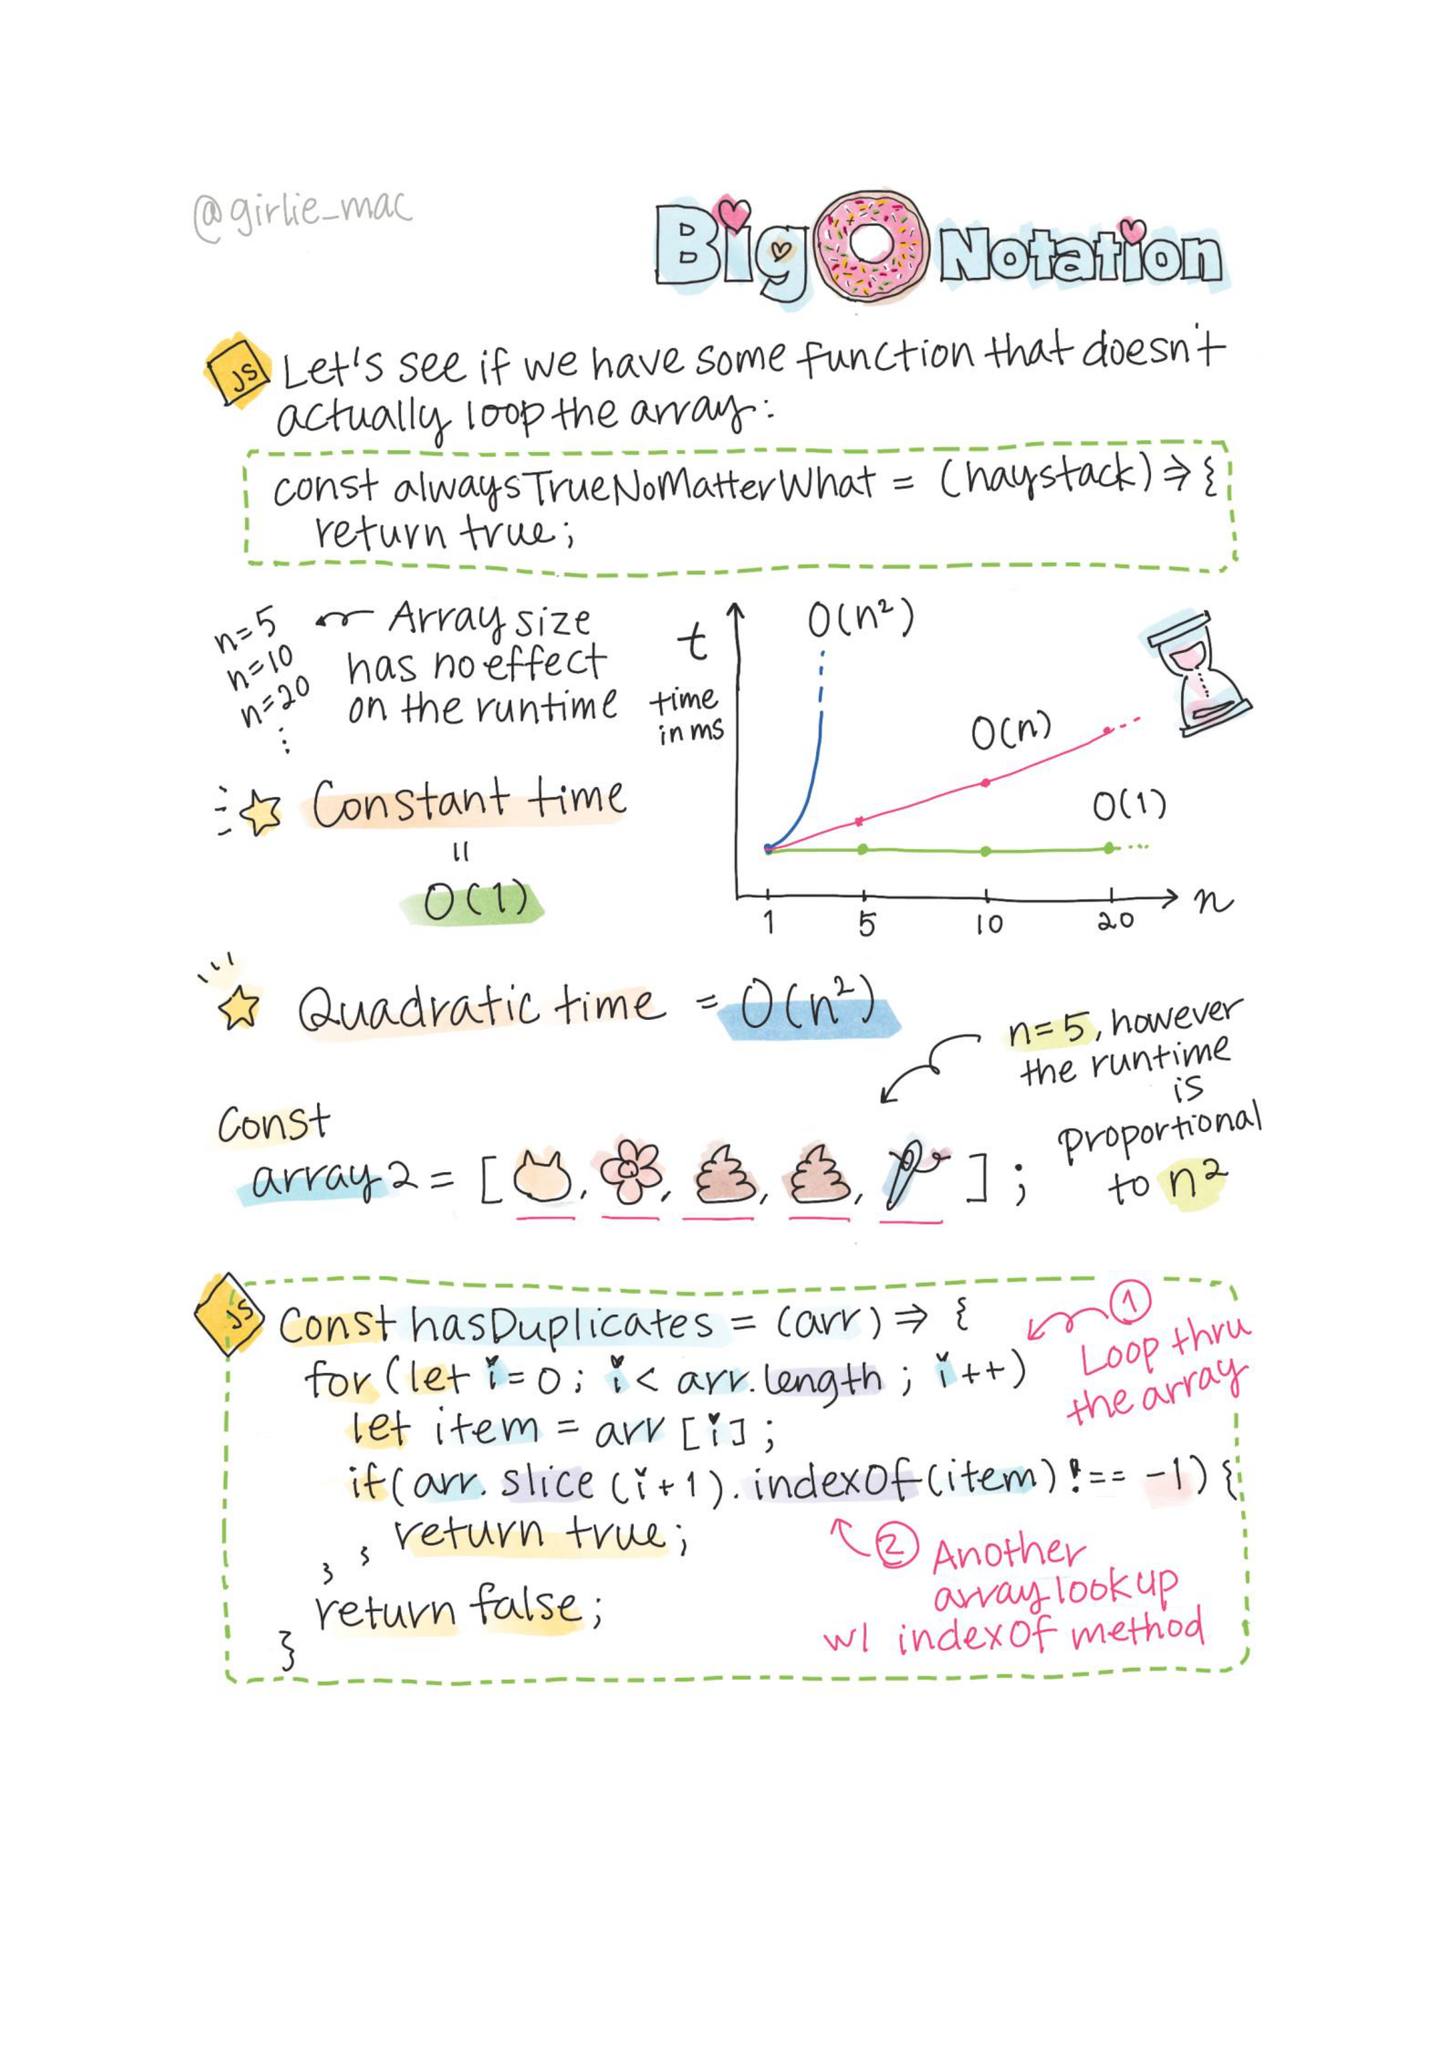 @girlie_mac
Big O Notation
JS Let's see if we have some function that doesn't
actually loop the array:
const alwaysTrueNoMatterWhat = (haystack) => {
return true;
n=5
n=10
n=20
⋮
Array size
has no effect
on the runtime
t
time
in ms
O(n²)
O(n)
O(1)
1 5 10 20 n
Constant time
=
O(1)
Quadratic time = O(n²)
n=5, however
the runtime
is
proportional
to n²
Const
array2 = [ , , , , ] ;
JS Const hasDuplicates = (arr) => {
for (let i=0; i< arr.length; i++)
let item = arr [i];
if(arr. slice (i+1). indexOf(item) !== -1) {
return true;
} }
return false;
}
① Loop thru
the array
② Another
array lookup
w/ indexOf method